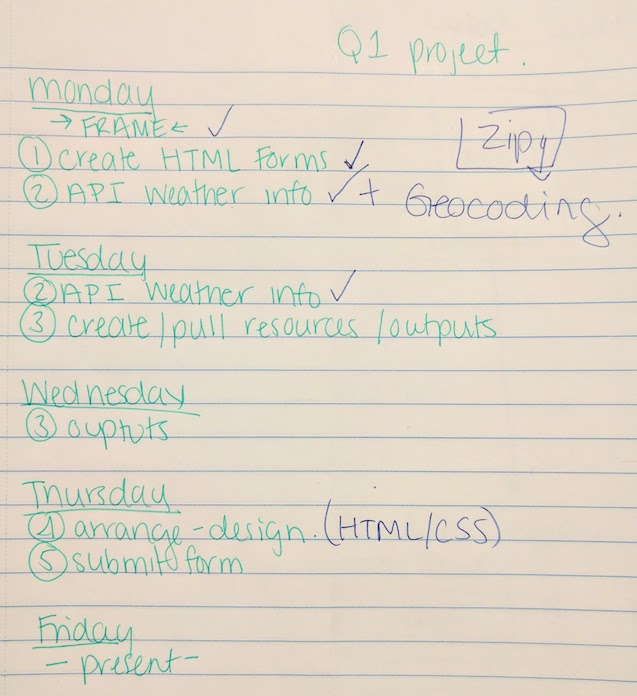 Q1 project.
monday
→ FRAME ← ✓
① create HTML Forms ✓
Zipy
② API weather info ✓ + Geocoding.
Tuesday
② API Weather info ✓
③ create/pull resources/outputs
Wednesday
③ ouptuts
Thursday
④ arrange-design. (HTML/CSS)
⑤ submit form
Friday
- present -